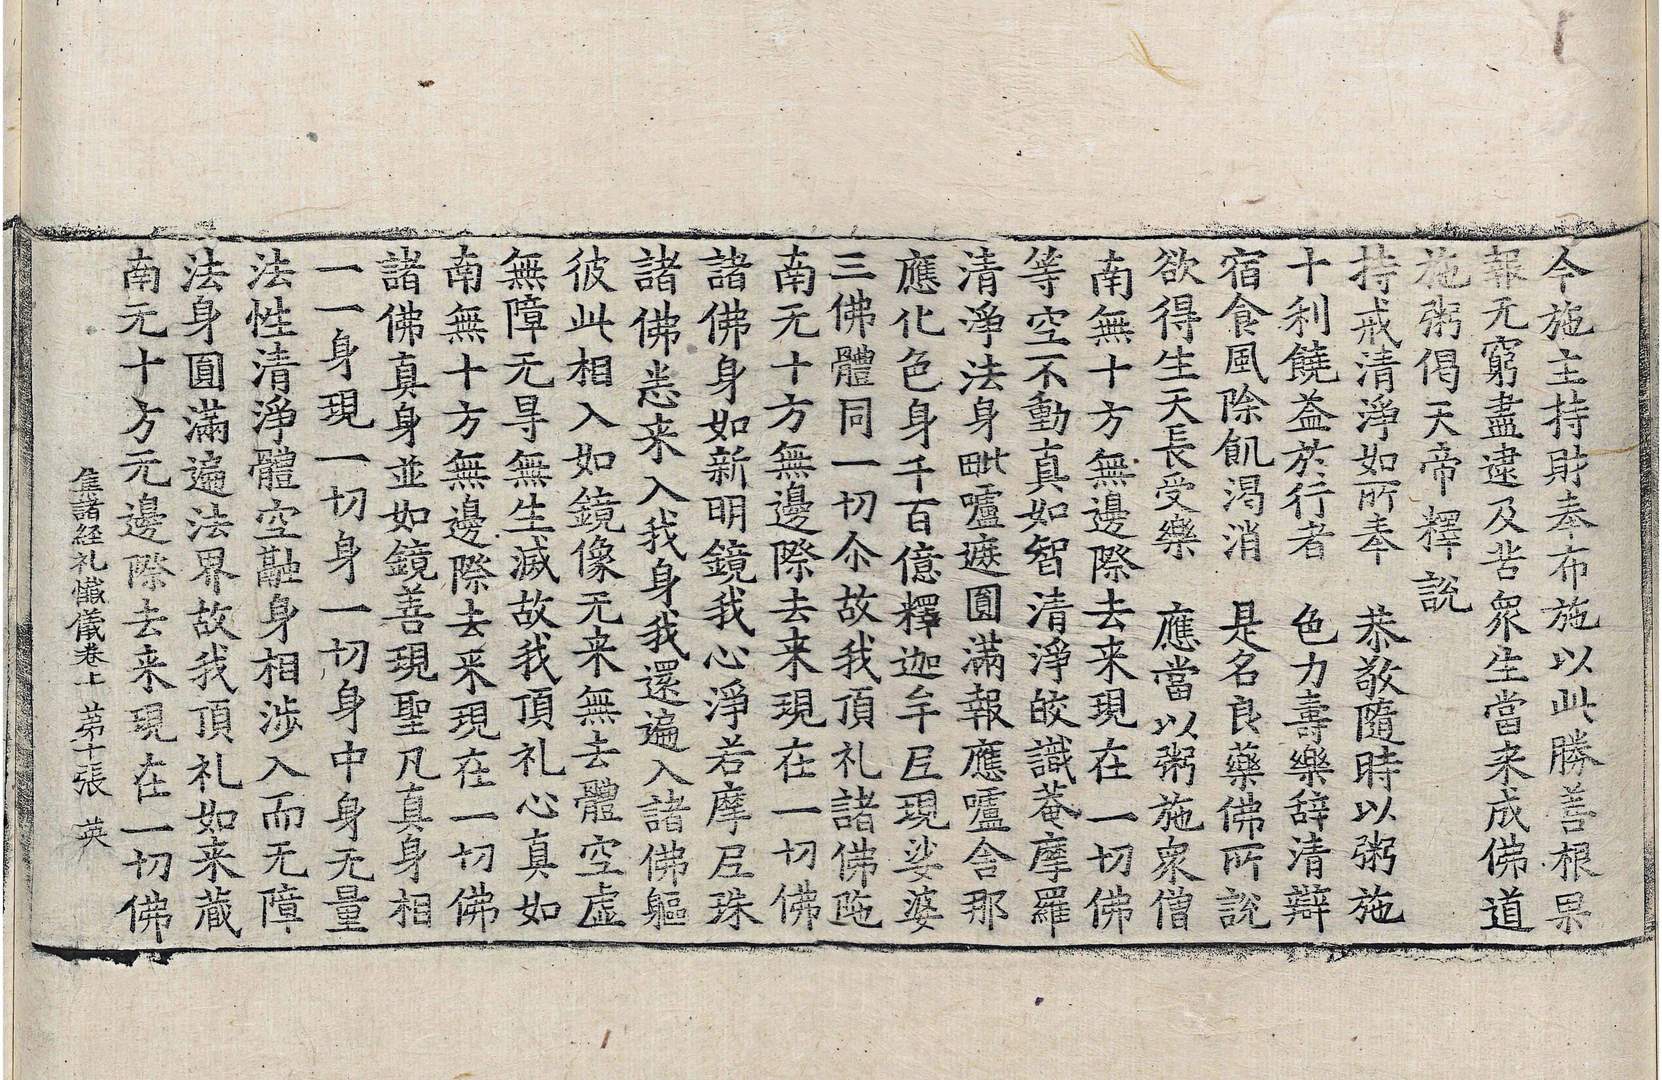 今施主持財奉布施以此勝善根果
報无窮盡逮及苦衆生當来成佛道
施粥偈天帝釋說
持戒清淨如所奉　恭敬隨時以粥施
十利饒益於行者　色力壽樂辞清辯
宿食風除飢渴消　是名良藥佛所說
欲得生天長受樂　應當以粥施衆僧
南無十方無邊際去来現在一切佛
等空不動真如智清淨皎識菴摩羅
清淨法身毗嚧遮圓滿報應嚧舍那
應化色身千百億釋迦牟尼現娑婆
三佛體同一切尒故我頂礼諸佛陁
南无十方無邊際去来現在一切佛
諸佛身如新明鏡我心淨若摩尼珠
諸佛悉来入我身我還遍入諸佛軀
彼此相入如鏡像无来無去體空虛
無障无㝵無生滅故我頂礼心真如
南無十方無邊際去来現在一切佛
諸佛真身並如鏡善現聖凡真身相
一一身現一切身一切身中身无量
法性清淨體空融身相涉入而无障
法身圓滿遍法界故我頂礼如来藏
南无十方无邊際去来現在一切佛
集諸經礼懺儀卷上　苐十張　英